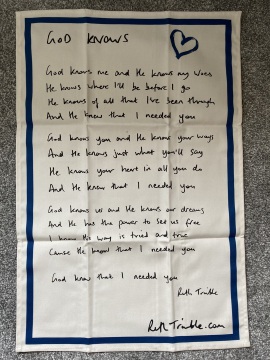 GOD KNOWS
God knows me and He knows my woes
He knows where I'll be before I go
He knows of all that I've been through
And He knew that I needed you
God knows you and He knows your ways
And He knows just what you'll say
He knows your heart in all you do
And He knew that I needed you
God knows us and He knows our dreams
And He has the power to set us free
I know His way is tried and true
Cause He knew that I needed you
God knew that I needed you
Ruth Trimble
RuthTrimble.com